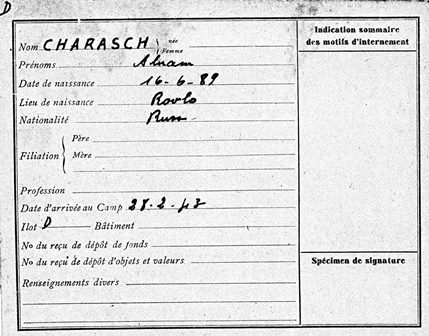 D
Nom CHARASCH née Femme
Prénoms Abram
Date de naissance 16-6-89
Lieu de naissance Rovlo
Nationalité Russ
Filiation Père
Mère
Profession
Date d'arrivée au Camp 28-2-43
Ilot D Bâtiment
No du reçu de dépôt de fonds
No du reçu de dépôt d'objets et valeurs
Renseignements divers
Indication sommaire
des motifs d'internement
Spécimen de signature